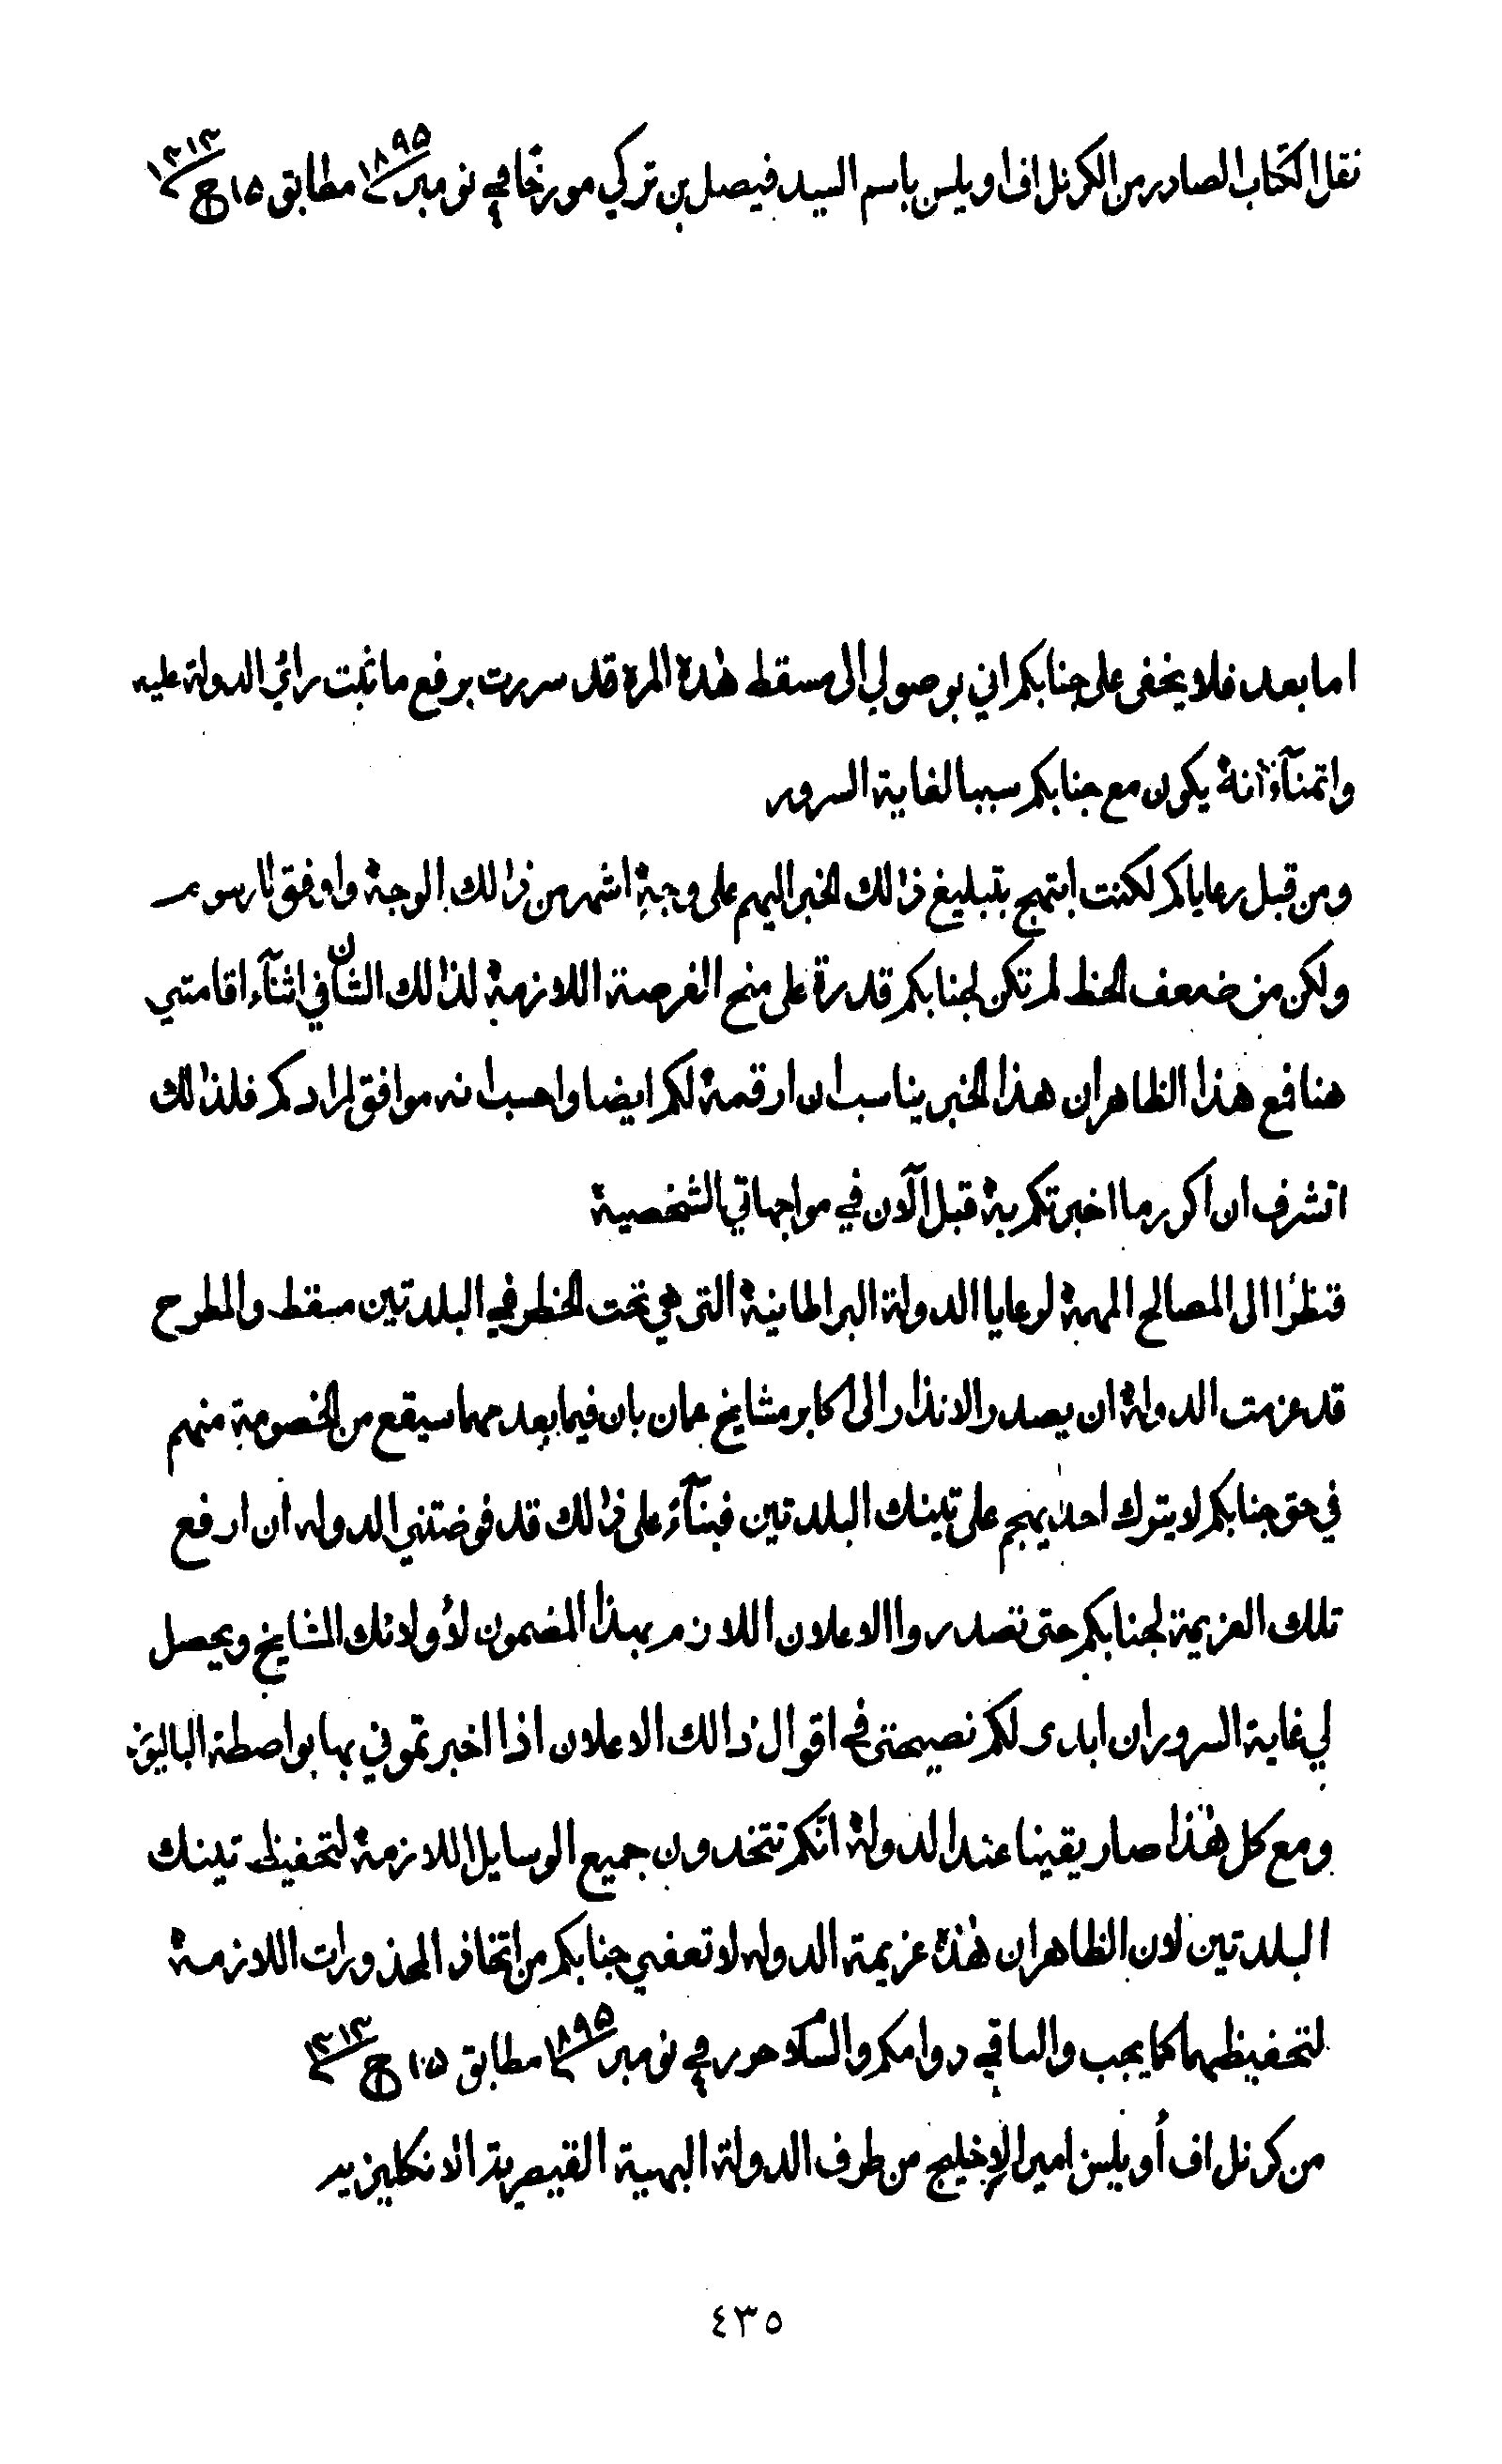 نقل الكتاب الصادر من الكرنل اف اويلسن باسم السيد فيصل بن تركي مورخا في ٤ نومبر ١٨٩٥ مطابق ١٥ ج ١٣١٣
اما بعد فلا يخفى على جنابكم اني بوصولي الى مسقط هذة المرة قد سررت برفع ما ثبت رائي الدولة عليه
واتمنآءً انهُ يكون مع جنابكم سببا لغاية السرور
ومن قبل رعاياكم لكنت ابتهج بتبليغ ذالك الخبر اليهم على وجهٍ اشهر من ذالك الوجهة واوفق بالرسوم
ولكن من ضعف الحظ لم تكن لجنابكم قدرة على منح الفرصة اللازمة لذالك الشان في اثنآء اقامتي
هنا فمع هذا الظاهر ان هذا الخبر يناسب ان ارقمهُ لكم ايضا واحسب انه موافق لمرادكم فلذالك
اتشرف ان اكرر ما اخبرتكم بهُ قبل الآن في مواجهاتي الشخصية
فنظرًا الى المصالح المهمة لرعايا الدولة البراطانية التى هي تحت الخطر في البلدتين مسقط والمطرح
قد عزمت الدولة ان يصدر الانذار الى اكابر مشايخ عمان بان فيما بعد مهما سيقع من الخصومة منهم
في حق جنابكم لا يترك احد يهجم على تينك البلدتين فبنآءً على ذالك قد فوضتني الدوله ان ارفع
تلك العزيمة لجنابكم حتى تصدروا الاعلان اللازم بهذا المضمون لأولائك المشايخ ويحصل
لي غاية السرور ان ابدى لكم نصيحتى في اقوال ذالك الاعلان اذا اخبرتموني بها بواصطة الباليوز
ومع كل هذا صار يقينا عند الدولة انكم تتخدون جميع الوسايل اللازمة لتحفيظ تينك
البلدتين لان الظاهر ان هذة عزيمة الدوله لا تعفي جنابكم من اتخاذ المحذورات اللازمة
لتحفيظهما كما يجب والباقي دوامكم والسلام حرر في ٤ نومبر ١٨٩٥ مطابق ١٥ ج ١٣١٣
من كرنل اف أويلسن امير الإخليج من طرف الدولة البهية القيصرية الانكليزيه
٤٣٥